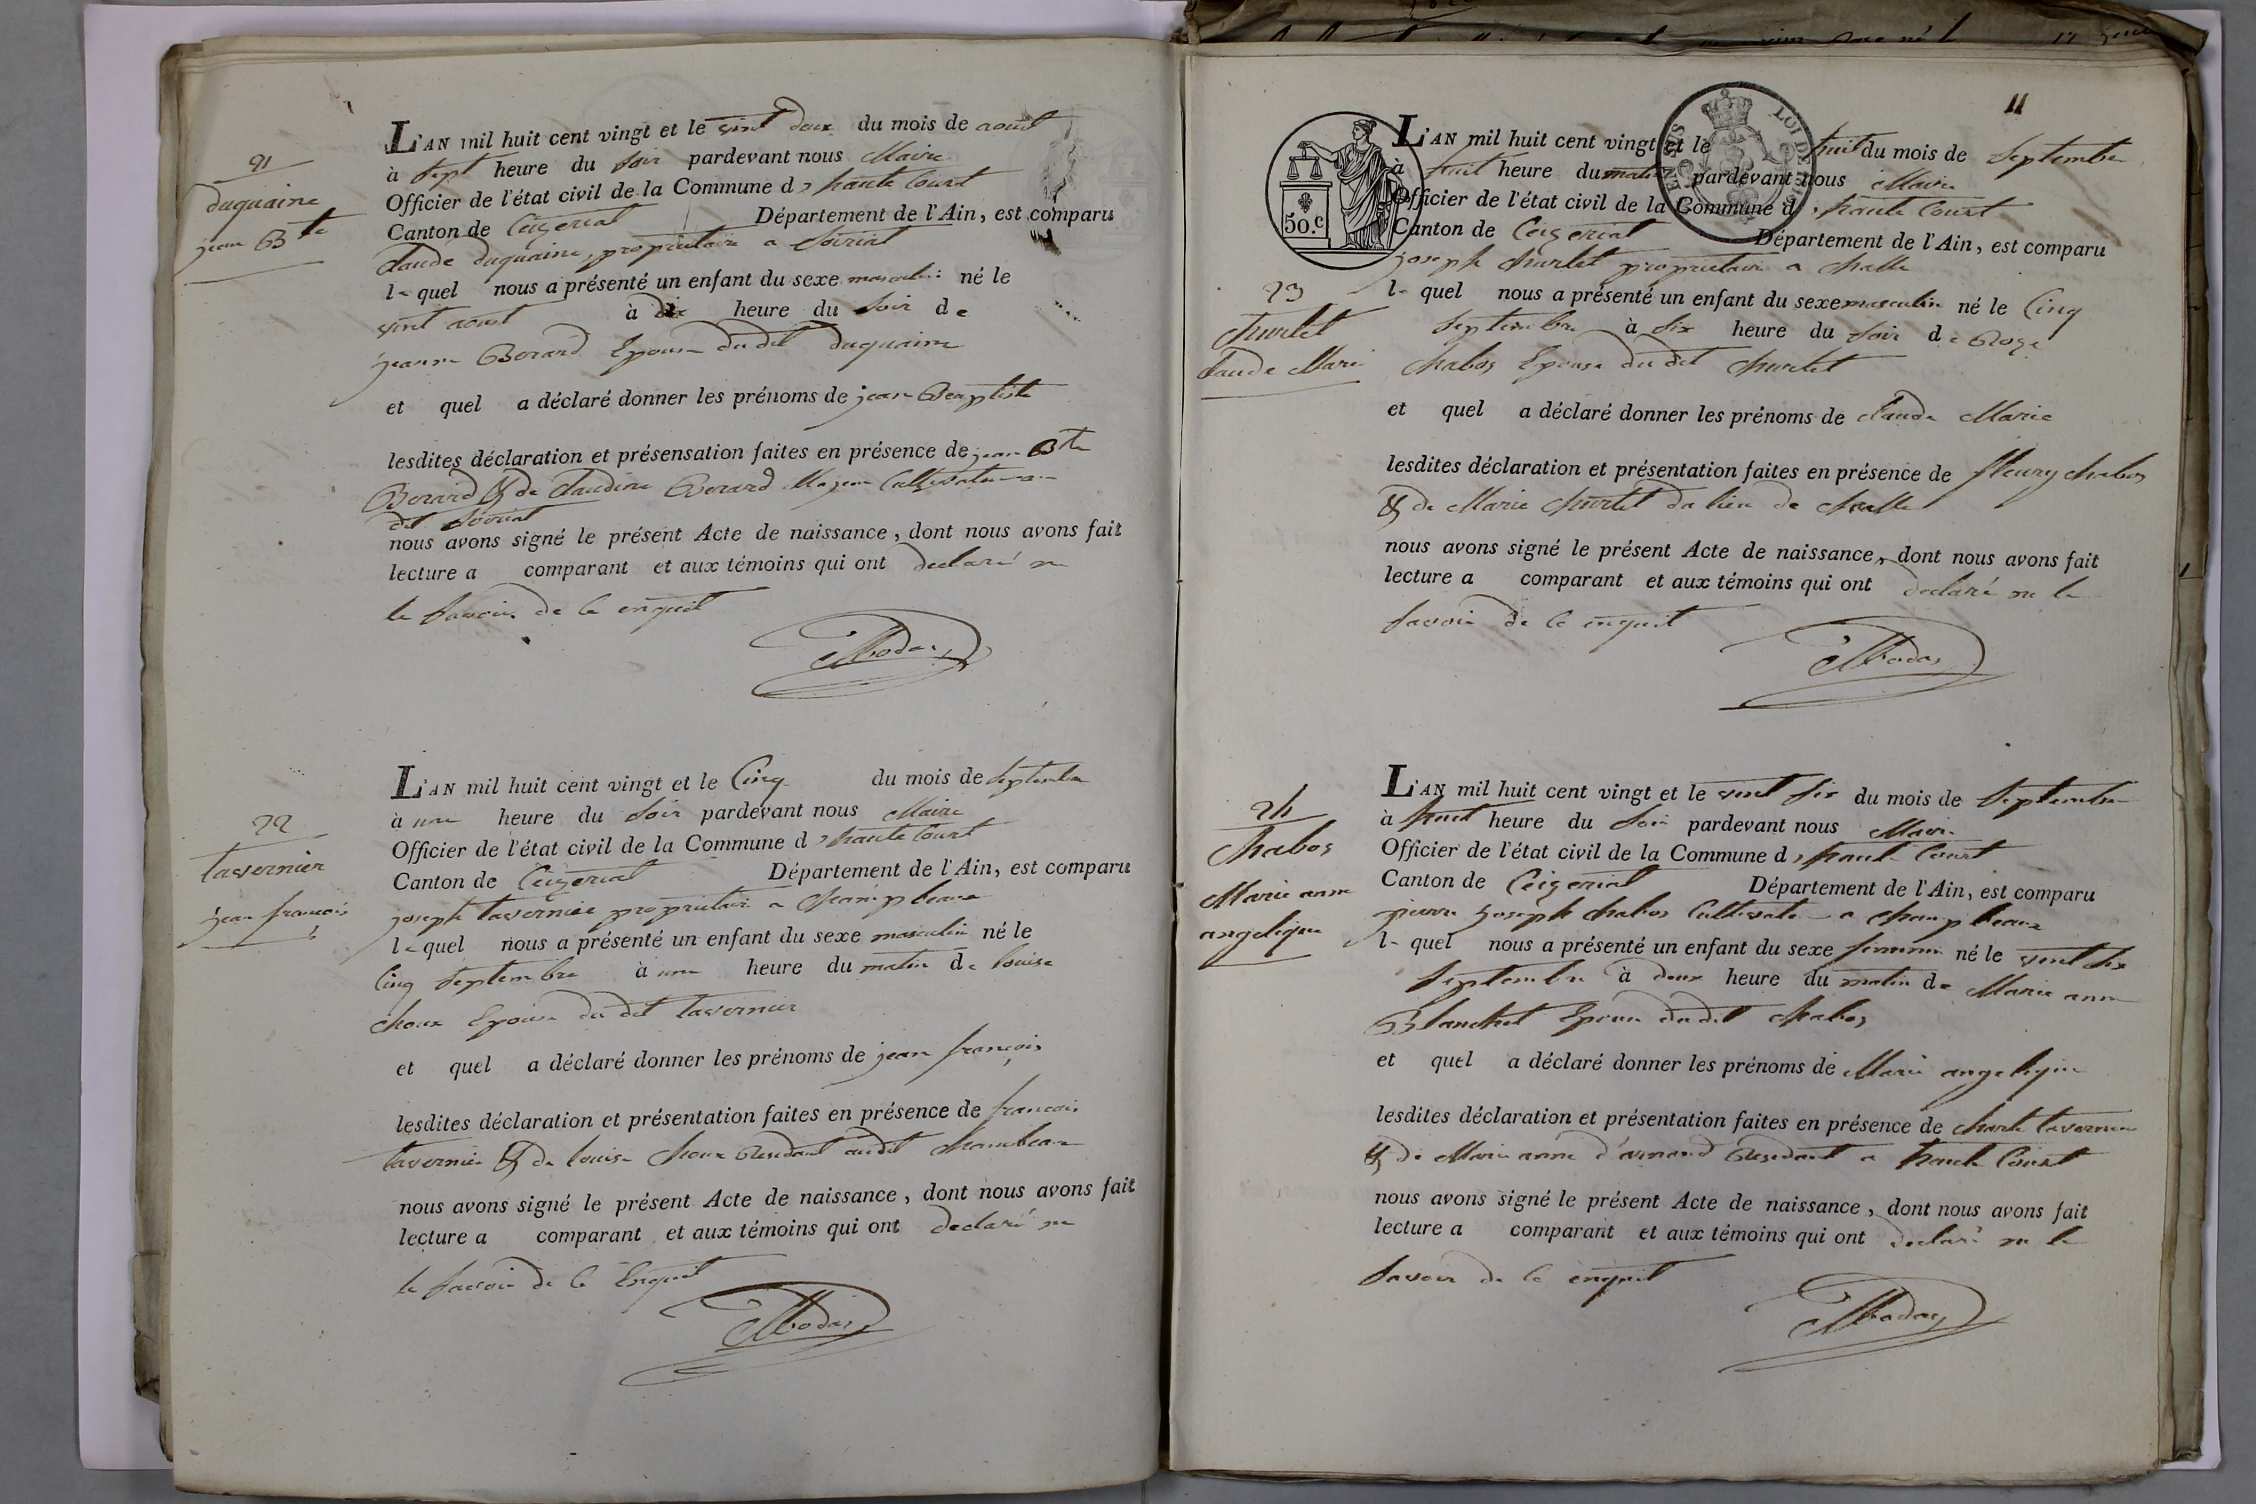 21
duquaine
jean Bte
L'AN mil huit cent vingt et le vint deux du mois de aout
à sept heure du soir pardevant nous Maire
Officier de l'état civil de la Commune d'haute Court
Canton de Ceizeriat Département de l'Ain, est comparu
Claude duquaine, propriétaire a
le quel nous a présenté un enfant du sexe masculin né le
vint aout à dix heure du soir de
jeanne Borard Epouse du dit duquaine
et quel a déclaré donner les prénoms de jean Baptiste
lesdites déclaration et présensation faites en présence de jean Bte
Borard & de Claudine Borard
dit
nous avons signé le présent Acte de naissance, dont nous avons fait
lecture a comparant et aux témoins qui ont declaré ne
le savoir de ce enquit
22
tavernier
jean françois
L'AN mil huit cent vingt et le Cinq du mois de septembre
à une heure du soir pardevant nous Maire
Officier de l'état civil de la Commune d'haute Court
Canton de Ceizeriat Département de l'Ain, est comparu
joseph tavernier propriétaire a Champbeaux
le quel nous a présenté un enfant du sexe masculin né le
Cinq septembre à une heure du matin de louise
Choux Epouse du dit tavernier
et quel a déclaré donner les prénoms de jean françois
lesdites déclaration et présentation faites en présence de françois
tavernier & de louise Choux Residant audit
nous avons signé le présent Acte de naissance, dont nous avons fait
lecture a comparant et aux témoins qui ont declaré ne
le savoir de ce Enquit
11
50.c
EN SUS
LOI DE 1816
L'AN mil huit cent vingt et le huit du mois de Septembre
à huit heure du matin pardevant nous Maire
Officier de l'état civil de la Commune d'haute Court
Canton de Ceizeriat Département de l'Ain, est comparu
joseph Churlet propriétaire a Challe
23
Churlet
Claude Marie
le quel nous a présenté un enfant du sexe masculin né le Cinq
Septembre à Six heure du soir de Roze
Chabos Epouse du dit Churlet
et quel a déclaré donner les prénoms de Claude Marie
lesdites déclaration et présentation faites en présence de fleury Chabos
& de Marie Churlet du lieu de Challe
nous avons signé le présent Acte de naissance, dont nous avons fait
lecture a comparant et aux témoins qui ont declaré ne le
savoir de ce enquit
24
Chabos
Marie anne
angelique
L'AN mil huit cent vingt et le vint six du mois de Septembre
à huit heure du soir pardevant nous Maire
Officier de l'état civil de la Commune d'haute Court
Canton de Ceizeriat Département de l'Ain, est comparu
pierre joseph Chabos Cultivateur a Champbeaux
le quel nous a présenté un enfant du sexe feminin né le vint six
Septembre à deux heure du matin de Marie anne
Blanchet Epouse dudit Chabos
et quel a déclaré donner les prénoms de Marie angelique
lesdites déclaration et présentation faites en présence de Charle tavernier
& de Marie anne d'arnand Residant a haute Court
nous avons signé le présent Acte de naissance, dont nous avons fait
lecture a comparant et aux témoins qui ont declaré ne le
savoir de ce enquit